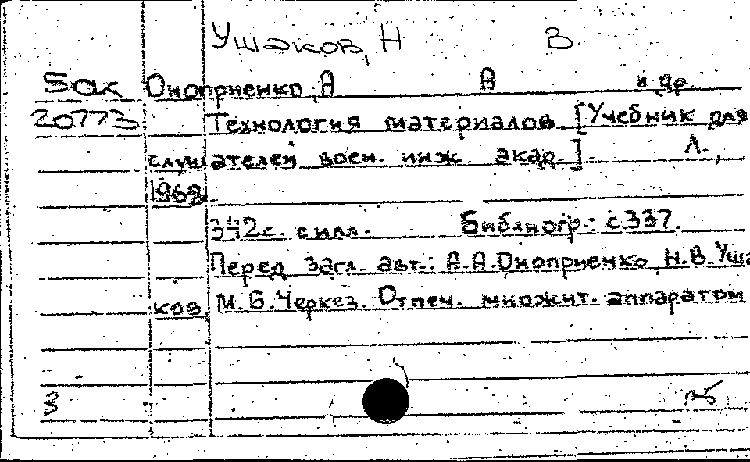 Ушаков, Н В.
5ак Оноприенко, А А и др.
20773 Технология материалов [Учебник для
слушателей воен. инж. акад.]. Л.,
1969.
342с. с илл. Библиогр.: с 337.
Перед загл. авт.: А.А.Оноприенко, Н.В.Уша
ков, М.Б.Черкез. Отпеч. множит. аппаратом
3